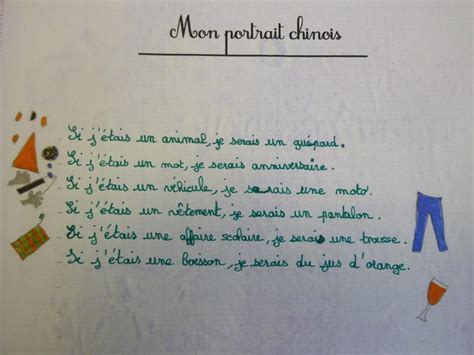 Mon portrait chinois
Si j'étais un animal, je serais un guépard.
Si j'étais un mot, je serais anniversaire.
Si j'étais un véhicule, je serais une moto.
Si j'étais un vêtement, je serais un pantalon.
Si j'étais une affaire scolaire, je serais une trousse.
Si j'étais une boisson, je serais du jus d'orange.